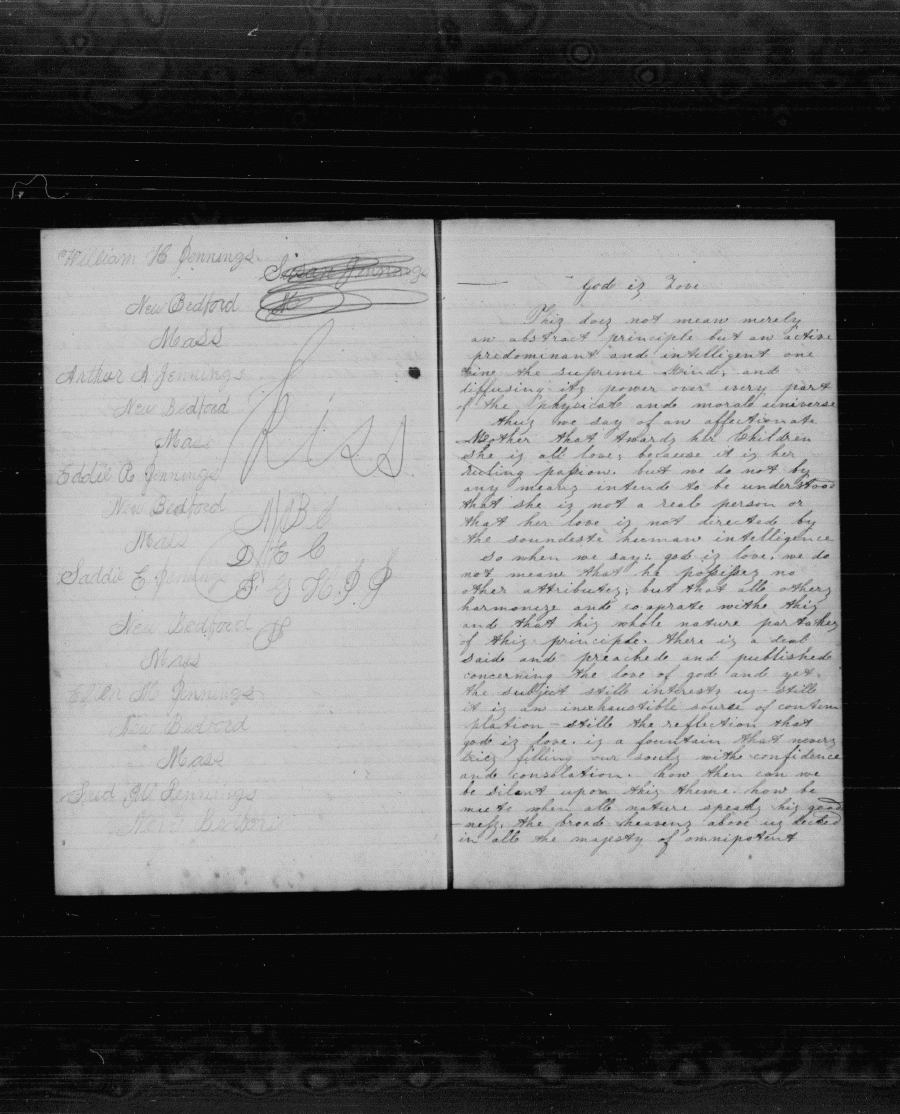 William H Jennings
Susan Jennings
New Bedford
Mass
Arthur A. Jennings
New Bedford
Mass
Kiss
Eddie R. Jennings
New Bedford
Mass
Saddie E. Jennings
New Bedford
Mass
Ellen M Jennings
New Bedford
Mass
Fred W Jennings
New Bedford
God iz Love
Thiz doez not mean merely
an abstract principle but an active
predominant and intelligent one
the supreme Mind, and
diffusing itz power over every part
of the physicale ande morale universe
thuz we say of an affectionate
Mother that awardz her Children
she iz all love; because it iz her
ruling passion. but we do not by
any meanz intende to be understood
that she iz not a reale person or
that her love iz not directed by
the soundeste human intelligence
so when we say: god iz love. we do
not meane that he possessez no
other attributez; but that alle otherz
harmonize ande co aprate withe thiz
ande that hiz whole nature partakez
of thiz principle. there iz a deal
saide ande preachede ande published
concerning the love of gode and yet.
the subject stille interestz uz - stille
it iz an inexhaustible source of contem
plation - stille the reflection that
gode iz love. iz a fountain that neverz
filling our soulz withe confidence
ande consolation. how then can we
be silent upon thiz theme. how be
mute when alle nature speakz hiz good
ness. the broade heavenz above uz decked
in alle the majesty of omnipotent